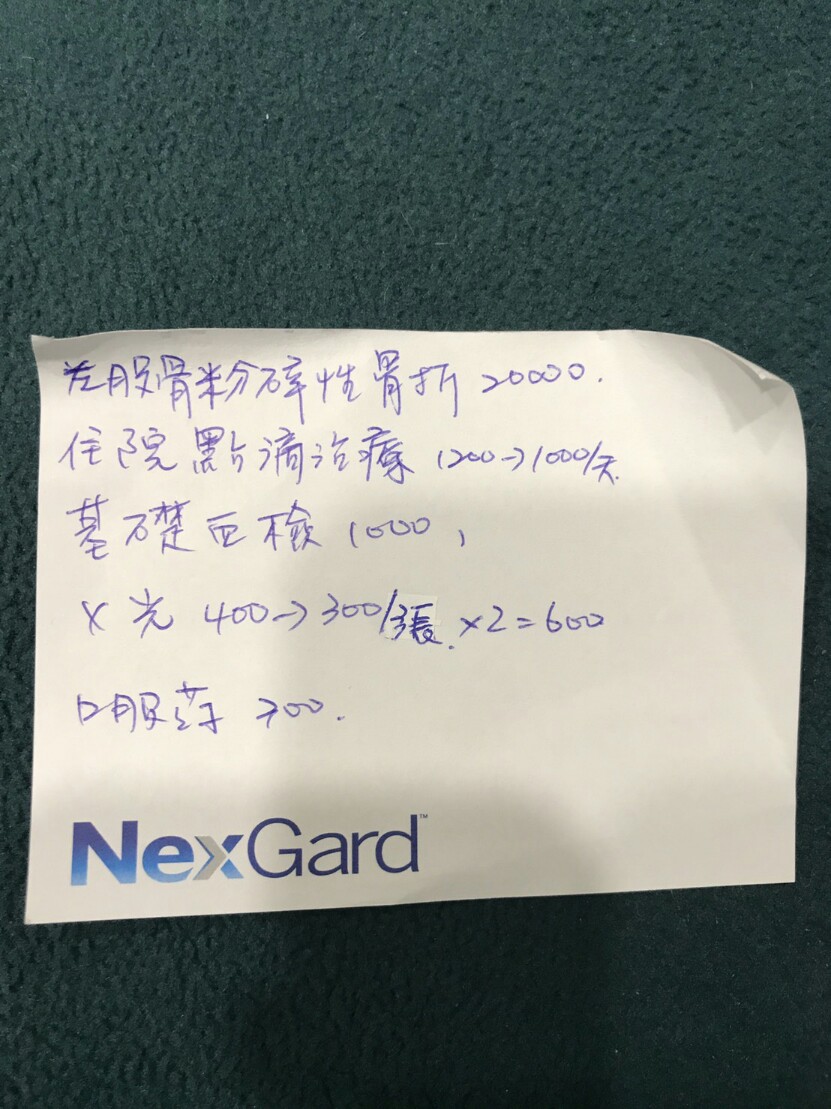 左股骨粉碎性骨折 20000.
住院點滴治療 1200→1000/天.
基礎血檢 1000,
X光 400→300/張.×2=600
口服药 700.
NexGard™